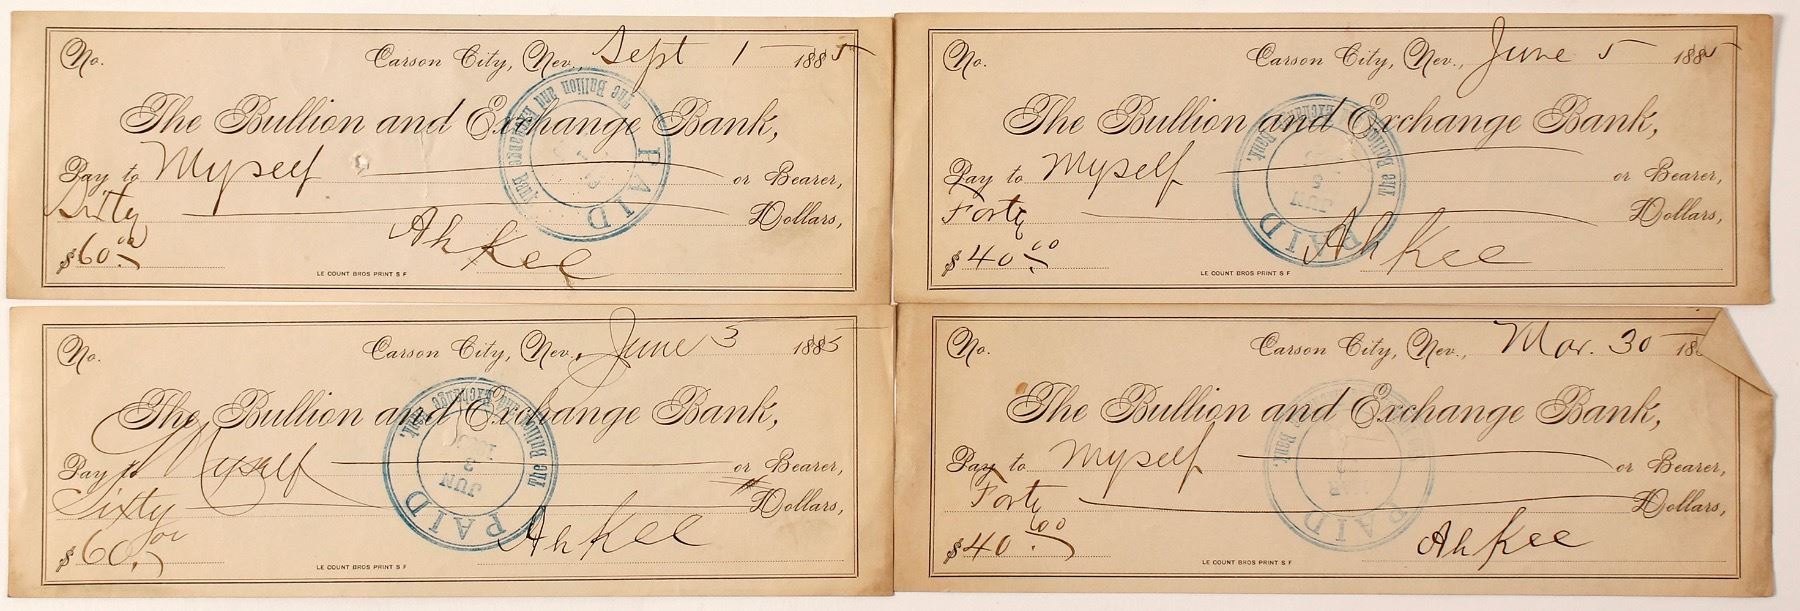 No. Carson City, Nev., Sept 1 1885
The Bullion and Exchange Bank,
Pay to Myself or Bearer,
Sixty Dollars,
$60.00
Ah Kee
LE COUNT BROS PRINT S F
The Bullion and Exchange Bank
PAID
No. Carson City, Nev., June 5 1885
The Bullion and Exchange Bank,
Pay to Myself or Bearer,
Forty Dollars,
$40.00
Ah Kee
LE COUNT BROS PRINT S F
The Bullion and Exchange Bank.
JUN 5
PAID
No. Carson City, Nev., June 3 1885
The Bullion and Exchange Bank,
Pay to Myself or Bearer,
Sixty Dollars,
$60.00
Ah Kee
LE COUNT BROS PRINT S F
The Bullion and Exchange Bank.
JUN 3
PAID
No. Carson City, Nev., Mar. 30 18
The Bullion and Exchange Bank,
Pay to Myself or Bearer,
Forty Dollars,
$40.00
Ah Kee
LE COUNT BROS PRINT S F
PAID